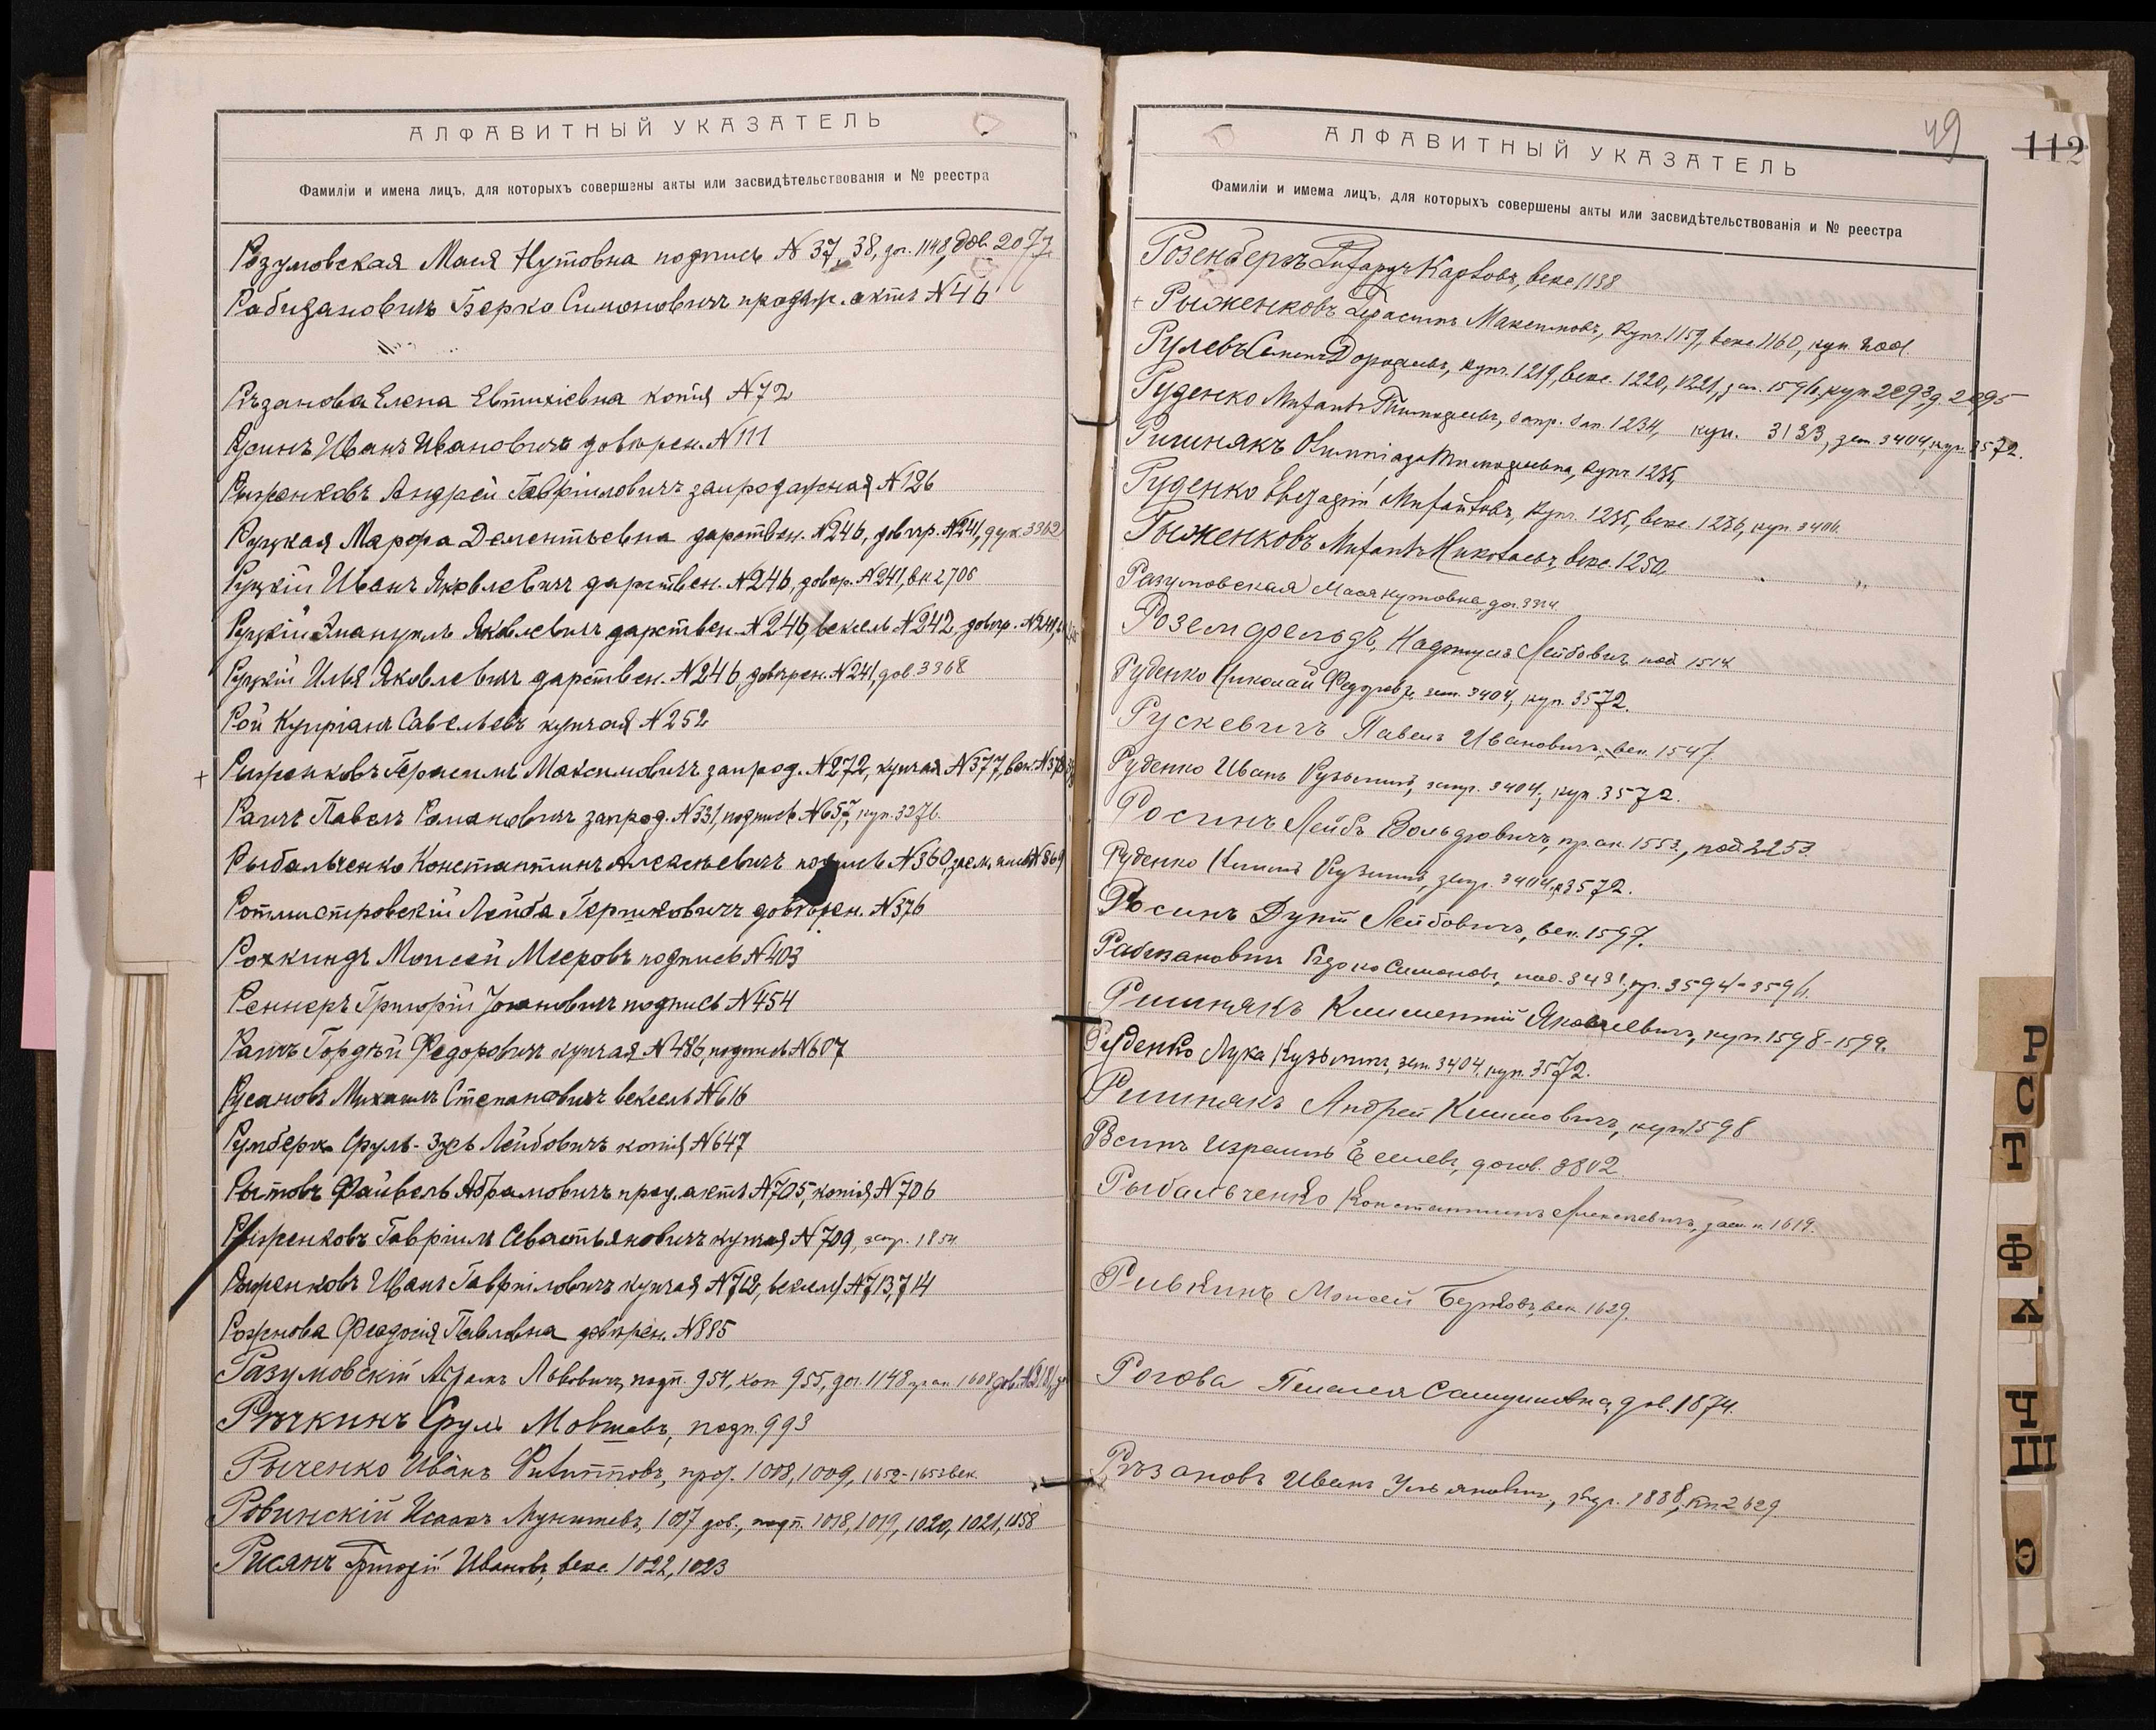 АЛФАВИТНЫЙ УКАЗАТЕЛЬ
Фамиліи и имена лицъ, для которыхъ совершены акты или засвидѣтельствованія и № реестра
Розумовская Мася Нутовна подпись № 37, 38, дог. 1148, дов. 2077
Рабизановичъ Берко Симоновичъ протест. актъ № 46
Рѣзанова Елена Евтихіевна копія № 72
Иванъ Ивановичъ довѣрен. № 111
Рыженковъ Андрей Гавріиловичъ запродажная № 126
Руцкая Марфа Дементьевна дарствен. № 246, довѣр. № 241, 3362
Руцкій Иванъ Яковлевичъ дарствен. № 246, довѣр. № 241, 2706
Руцкій Эмануилъ Яковлевичъ дарствен. № 246, вексель № 242, довѣр. № 241
Руцкій Илья Яковлевичъ дарствен. № 246, довѣрен. № 241, дов. 3368
Рой Купріанъ Савельевъ купчая № 252
+ Рыженковъ Герасимъ Максимовичъ запрод. № 272, купчая № 377, век. № 378
Раичъ Павелъ Романовичъ запрод. № 331, подпись № 657, куп. 3376.
Рыбальченко Константинъ Алексѣевичъ подпись № 360, № 869
Ротмистровскій Лейба Гершковичъ довѣрен. № 376
Рохкиндъ Моисей Мееровъ подпись № 403
Реннеръ Григорій Іогановичъ подпись № 454
Раичъ Гордѣй Федоровичъ купчая № 486, подпись № 607
Русановъ Михаилъ Степановичъ вексель № 616
Румберкъ Сруль-Зусь Лейбовичъ копія № 647
Рытовъ Файвель Абрамовичъ прот. актъ № 705, копія № 706
Рыженковъ Гавріилъ Севастьяновичъ купчая № 709, 1854
Рыженковъ Иванъ Гавріиловичъ купчая № 712, векселя № 713, 714
Рожнова Феодосія Павловна довѣрен. № 885
Разумовскій Абрамъ Львовичъ, подп. 954, коп. 955, дог. 1148, 1608
Рѣчкинъ Сруль Мовшевъ, подп. 993
Рыченко Иванъ Филипповъ, прод. 1008, 1009, 1652-1653 век.
Робинскій Исаакъ 1017 дов., подп. 1018, 1019, 1020, 1021, 1058
Григорій Ивановъ, векс. 1022, 1023
49
112
АЛФАВИТНЫЙ УКАЗАТЕЛЬ
Фамиліи и имема лицъ, для которыхъ совершены акты или засвидѣтельствованія и № реестра
Розенбергъ Рихардъ Карловъ, векс. 1188
+ Рыженковъ Герасимъ Максимовъ, купч. 1159, векс. 1160, куп.
Рулевъ Семенъ купч. 1219, векс. 1220, 1221, зап. 1596, куп. 2093, 2095
Руденко Михаилъ Тимофеевъ, запр. 1234, куп. 3133, зап. 3404, куп. 3572.
Ришнякъ Олимпіада Тимофеевна, купч. 1235,
Руденко Михайловъ, купч. 1235, векс. 1236, куп. 3406.
Рыженковъ Михаилъ Николаевъ, векс. 1250,
Разумовская Мася Нутовна, дог. 3324
Розенфельдъ, Лейбовичъ, под. 1514
Руденко Николай Федоровъ, зап. 3404, куп. 3572.
Рускевичъ Павелъ Ивановичъ, век. 1547.
Руденко Иванъ Кузьмичъ, запр. 3404, куп. 3572.
Росинъ Лейбъ Вольфовичъ, пр. ак. 1553., под. 2253.
Руденко Кузьмичъ, запр. 3404, 3572.
Росинъ Лейбовичъ, век. 1597.
Рабизановичъ Симоновъ, под. 3431, пр. 3594-3596.
Ришнякъ Климентій Яковлевичъ, куп. 1598-1599.
Руденко Лука Кузьмичъ, зап. 3404, куп. 3572.
Ришнякъ Андрей Климовичъ, куп. 1598
Израиль догов. 3802
Рыбальченко Константинъ Алексѣевичъ, 1619.
Ривкинъ Моисей Берковъ, век. 1629.
Рогова Пелагея Самуиловна, дов. 1874.
Рѣзановъ Иванъ 1888, 2629
Р
С
Т
Ф
Х
Ч
Ш
Э